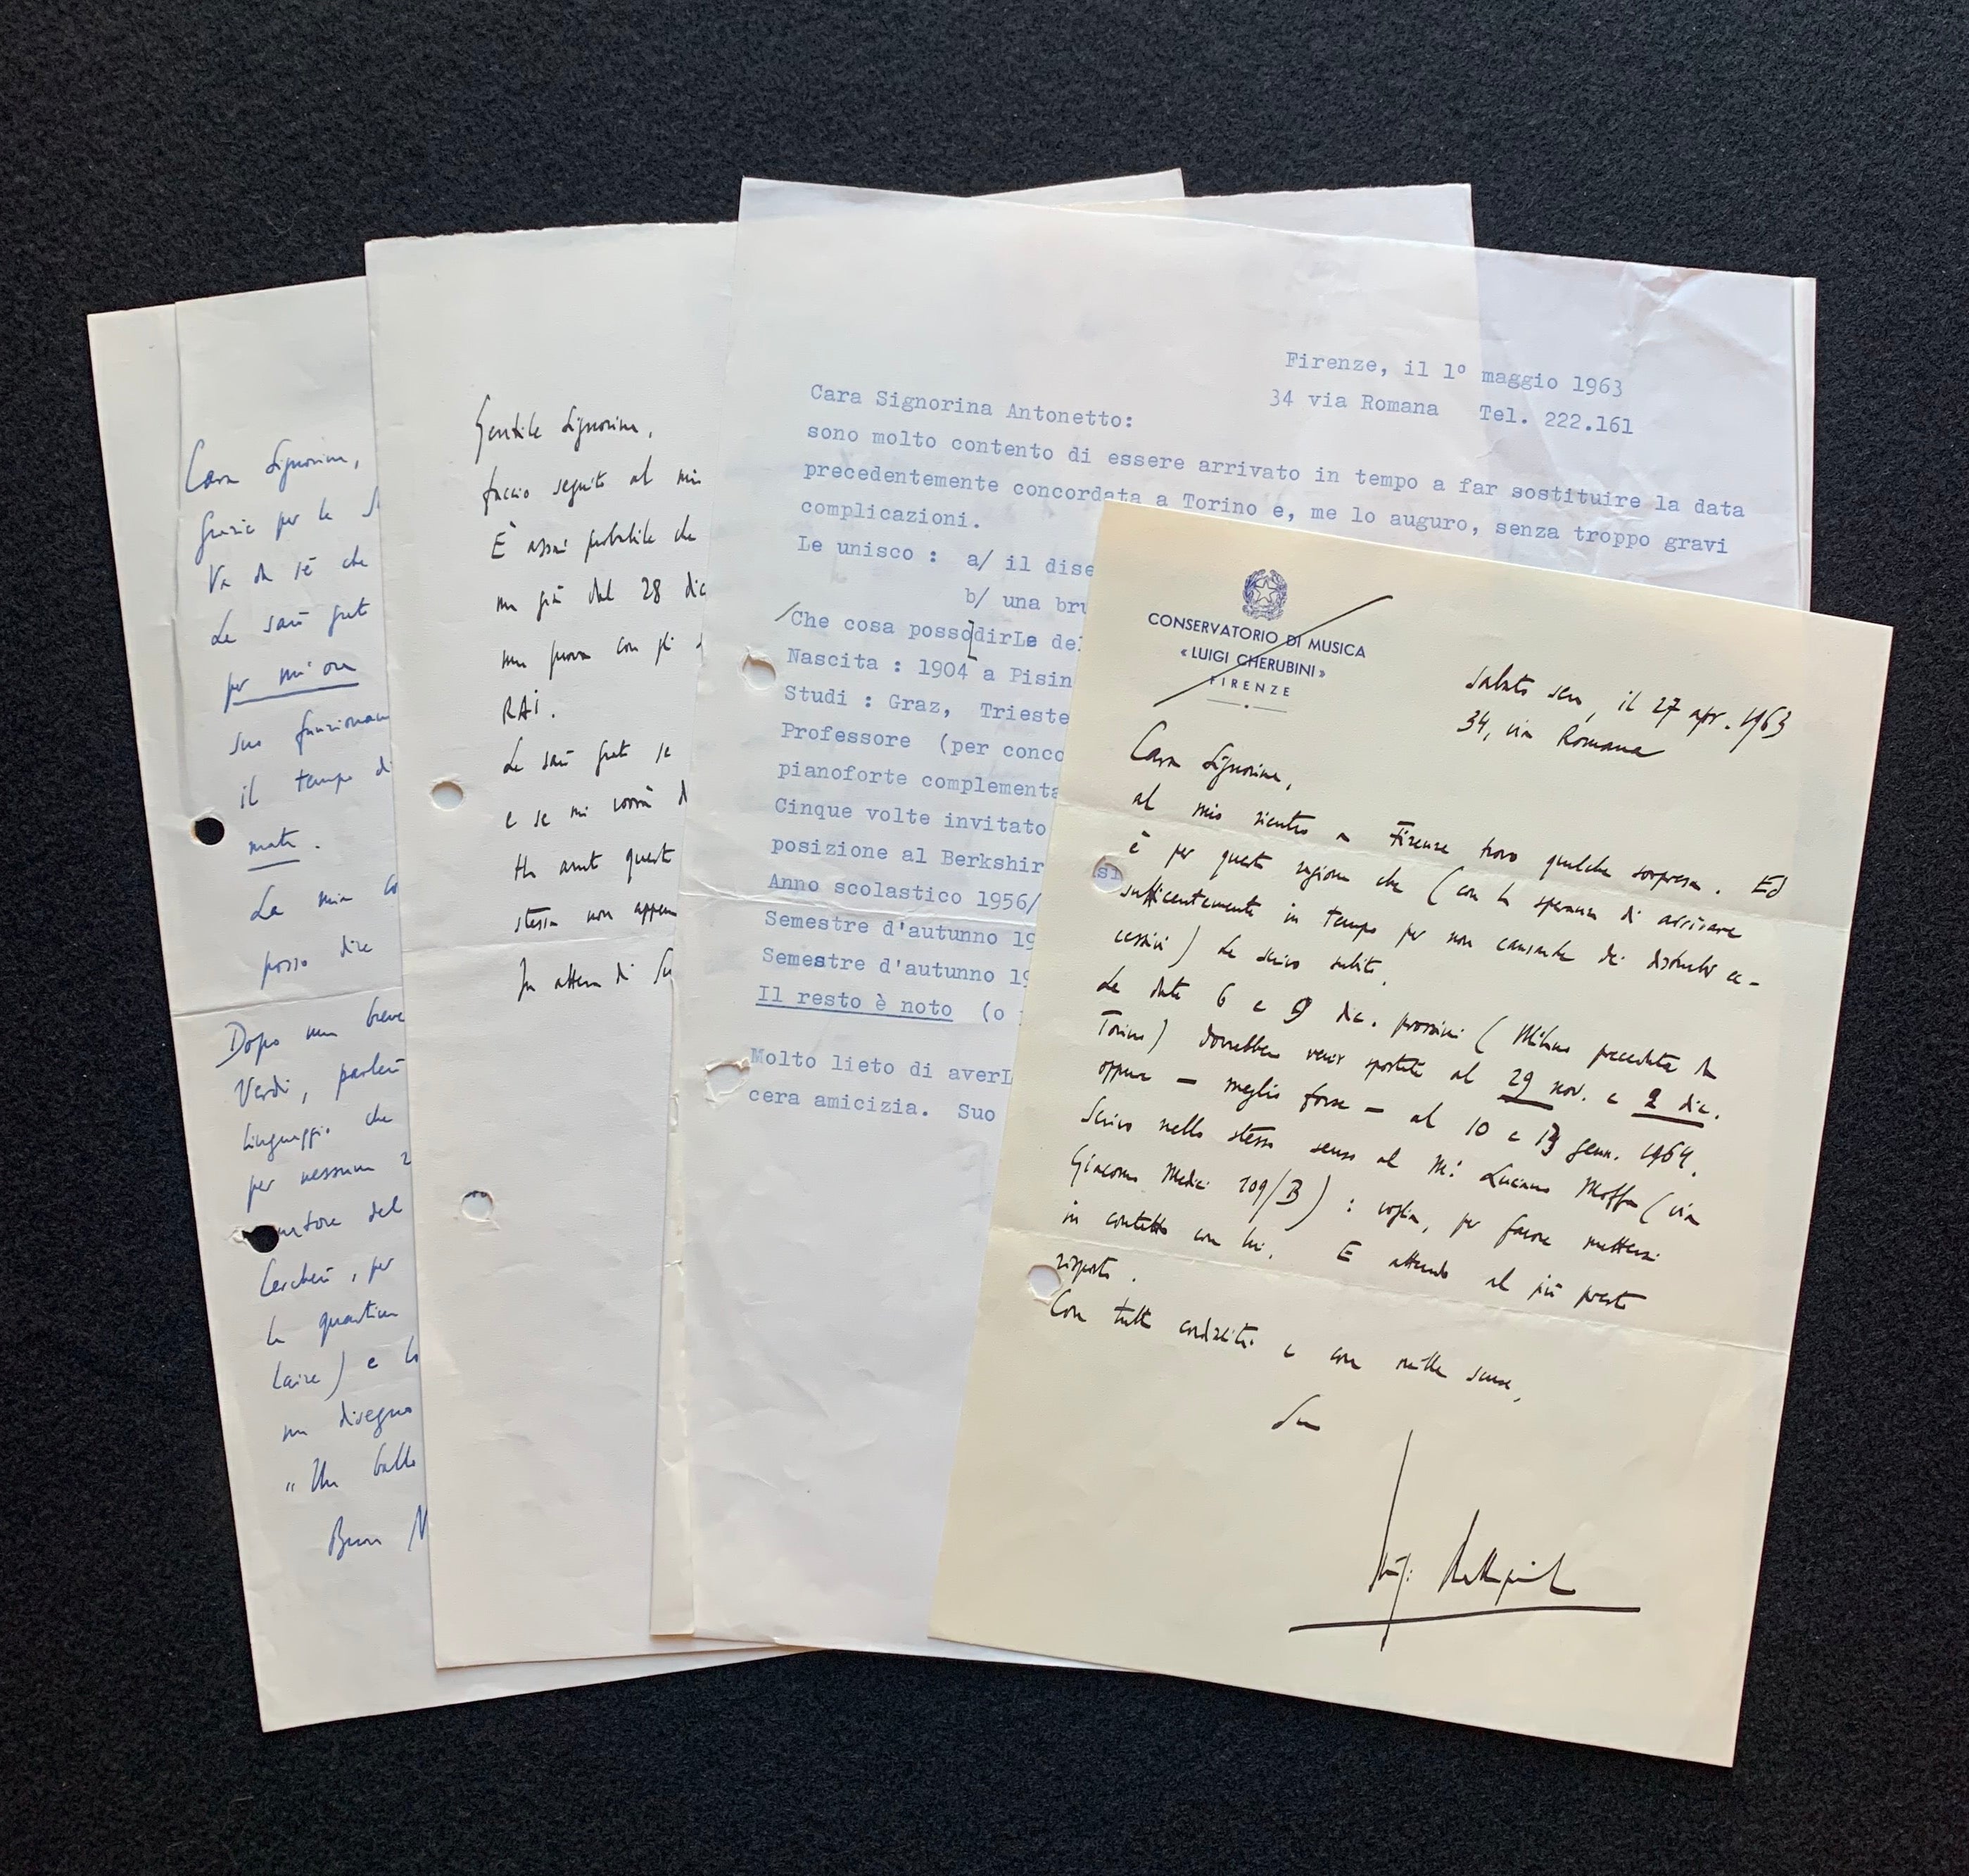 Cara Signorina,
Grazie per la
Va da sè che
Le sarò grat
per mi'ora
suo funziona
il tempo di
mate.
La mia co
posso dire
Dopo una breve
Verdi, parlerò
linguaggio che
per nessuna
del
Cercherò, per
la quartina
laire) e
un disegno
"Un ballo
Buon
Gentile Signorina,
faccio seguito al mio
È assai probabile che
ma già dal 28 dic
una prova con gli
RAI.
Le sarò grato se
e se mi vorrà d
Ho avuto questa
stessa non appena
In attesa di Su
Firenze, il 1º maggio 1963
34 via Romana Tel. 222.161
Cara Signorina Antonetto:
sono molto contento di essere arrivato in tempo a far sostituire la data
precedentemente concordata a Torino e, me lo auguro, senza troppo gravi
complicazioni.
Le unisco : a/ il dise
b/ una bru
Che cosa possodirLe del
Nascita : 1904 a Pisin
Studi : Graz, Trieste
Professore (per conco
pianoforte complementa
Cinque volte invitato
posizione al Berkshir
Anno scolastico 1956/
Semestre d'autunno 19
Semestre d'autunno 19
Il resto è noto (o
Molto lieto di averL
cera amicizia. Suo
si
CONSERVATORIO DI MUSICA
« LUIGI CHERUBINI »
FIRENZE
Sabato sera, il 27 apr. 1963
34, via Romana
Cara Signorina,
al mio rientro a Firenze trovo qualche sorpresa. Ed
è per questa ragione che (con la speranza di arrivare
sufficentemente in tempo per non causarLe dei disturbi ec-
cessivi) Le scrivo subito.
Le date 6 e 9 dic. prossimi (Milano preceduta da
Torino) dovrebbero venir spostate al 29 nov. e 2 dic.
oppure — meglio forse — al 10 e 13 genn. 1964.
Scrivo nello stesso senso al M.º Luciano Moffa (via
Giacomo Medici 109/B) : voglia, per favore mettersi
in contatto con lui. E attendo al più presto
risposta.
Con tutta cordialità e con mille scuse,
Suo